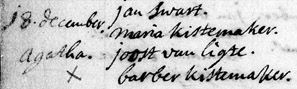 18. december. Jan Swart.
maria kistemaker.
agatha. joost van ligte.
× barber kistemaker.